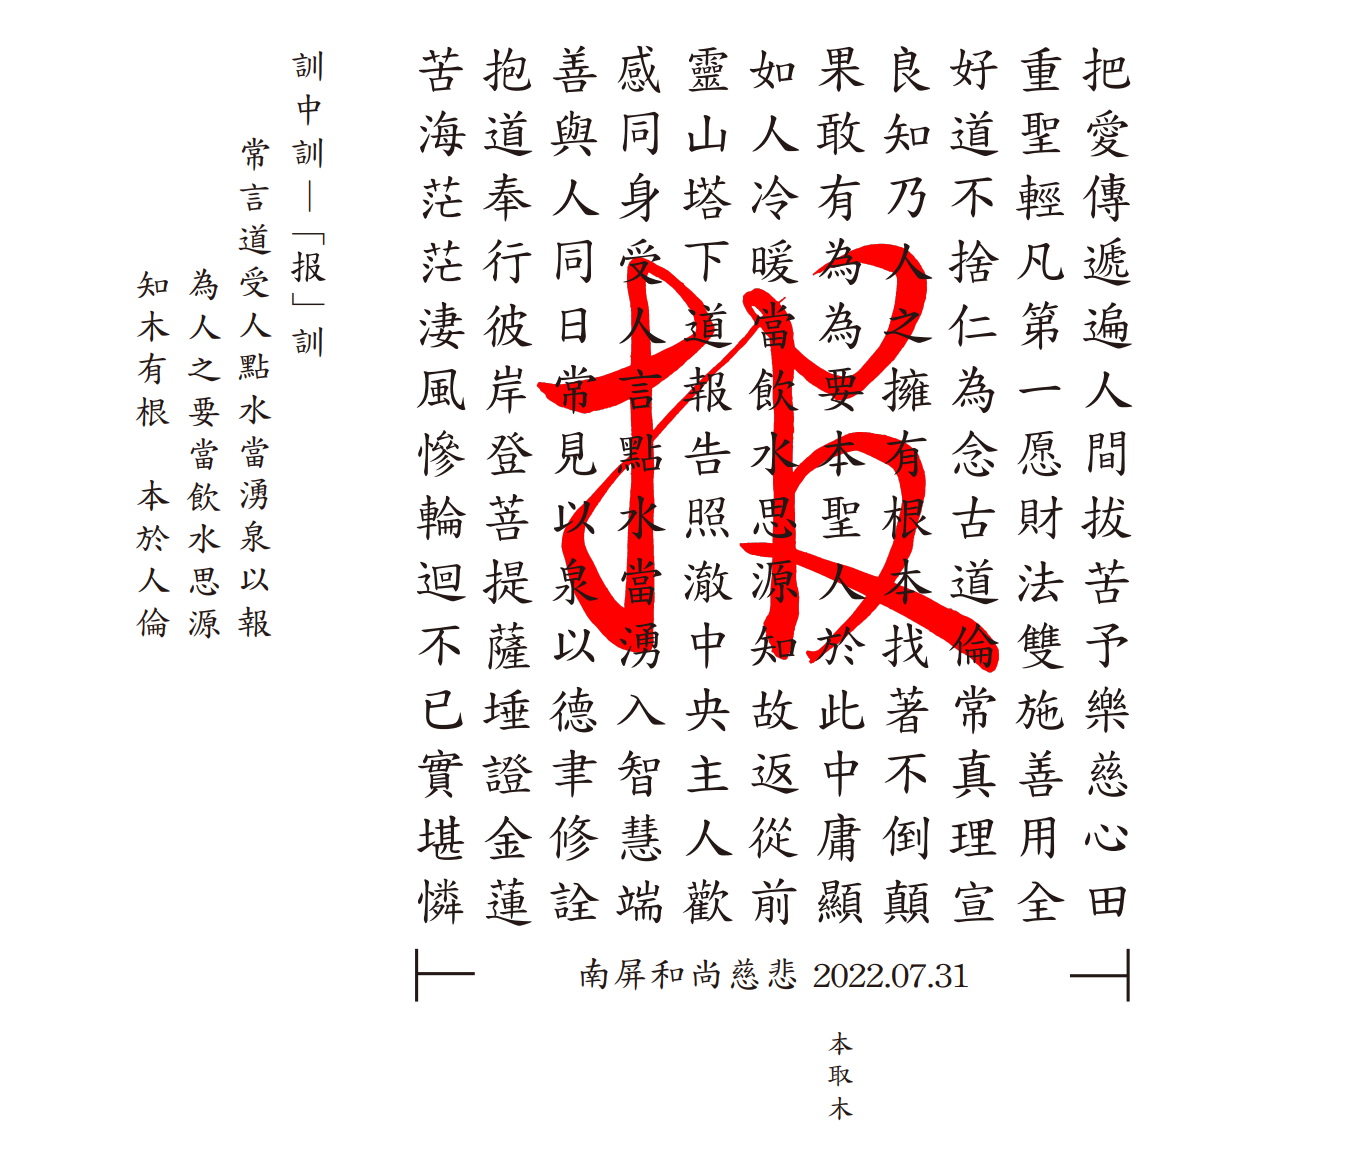 把愛傳遞遍人間拔苦予樂慈心田
重聖輕凡第一愿財法雙施善用全
好道不捨仁為念古道倫常真理宣
良知乃人之擁有根本找著不倒顛
果敢有為為要本聖人於此中庸顯
如人冷暖當飲水思源知故返從前
靈山塔下道報告照澈中央主人歡
感同身受人言點水當湧入智慧端
善與人同日常見以泉以德聿修詮
抱道奉行彼岸登菩提薩埵證金蓮
苦海茫茫淒風慘輪迴不已實堪憐
报
南屏和尚慈悲 2022.07.31
本取木
訓中訓—「报」訓
常言道受人點水當湧泉以報
為人之要當飲水思源
知木有根 本於人倫